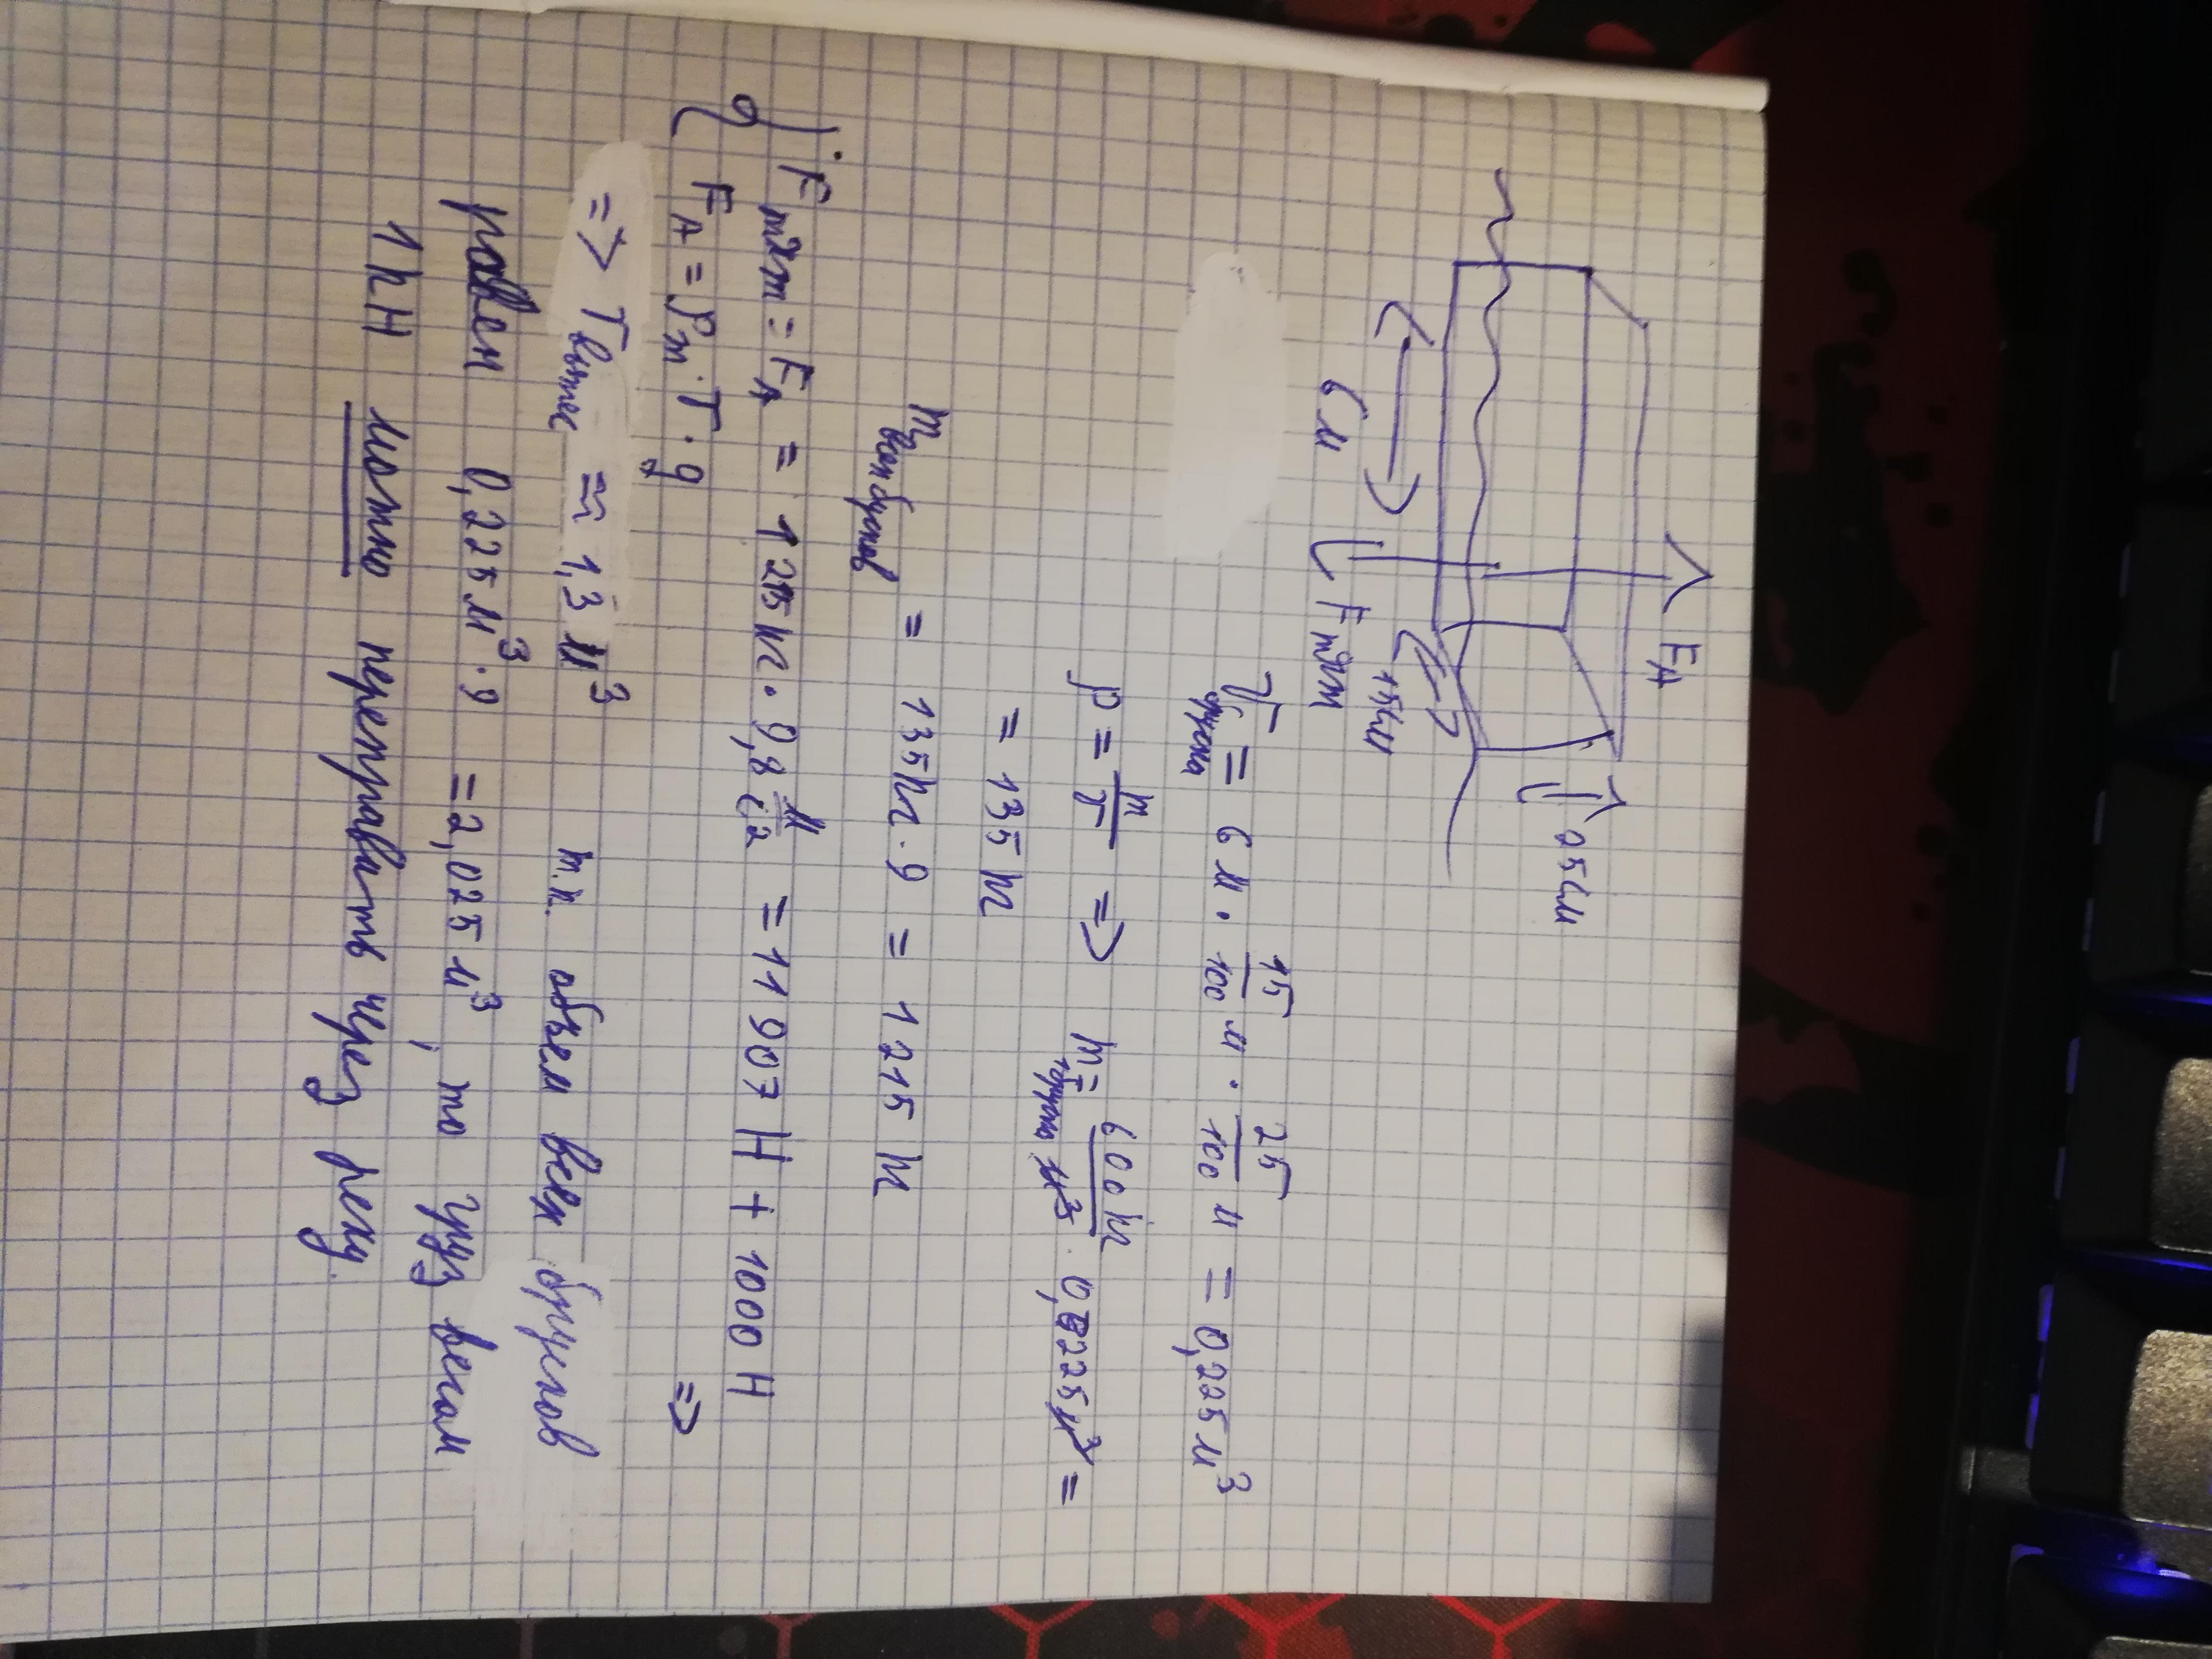 F_A
25см
15см
6м F_тяж
V_бруска = 6м · 15/100 м · 25/100 м = 0,225м³
ρ = m/V => m_1 бруска = 600кг/м³ · 0,225м³ =
= 135кг
m_всех брусков = 135кг · 9 = 1215 кг
F_тяж = F_A = 1215кг · 9,8 м/с² = 11907 Н + 1000 Н
F_A = ρ_ж · V · g =>
=> V_вытес ≈ 1,3 м³ т.к. объем всех брусков
равен 0,225м³ · 9 = 2,025м³, то груз весом
1 кН можно переправить через реку.